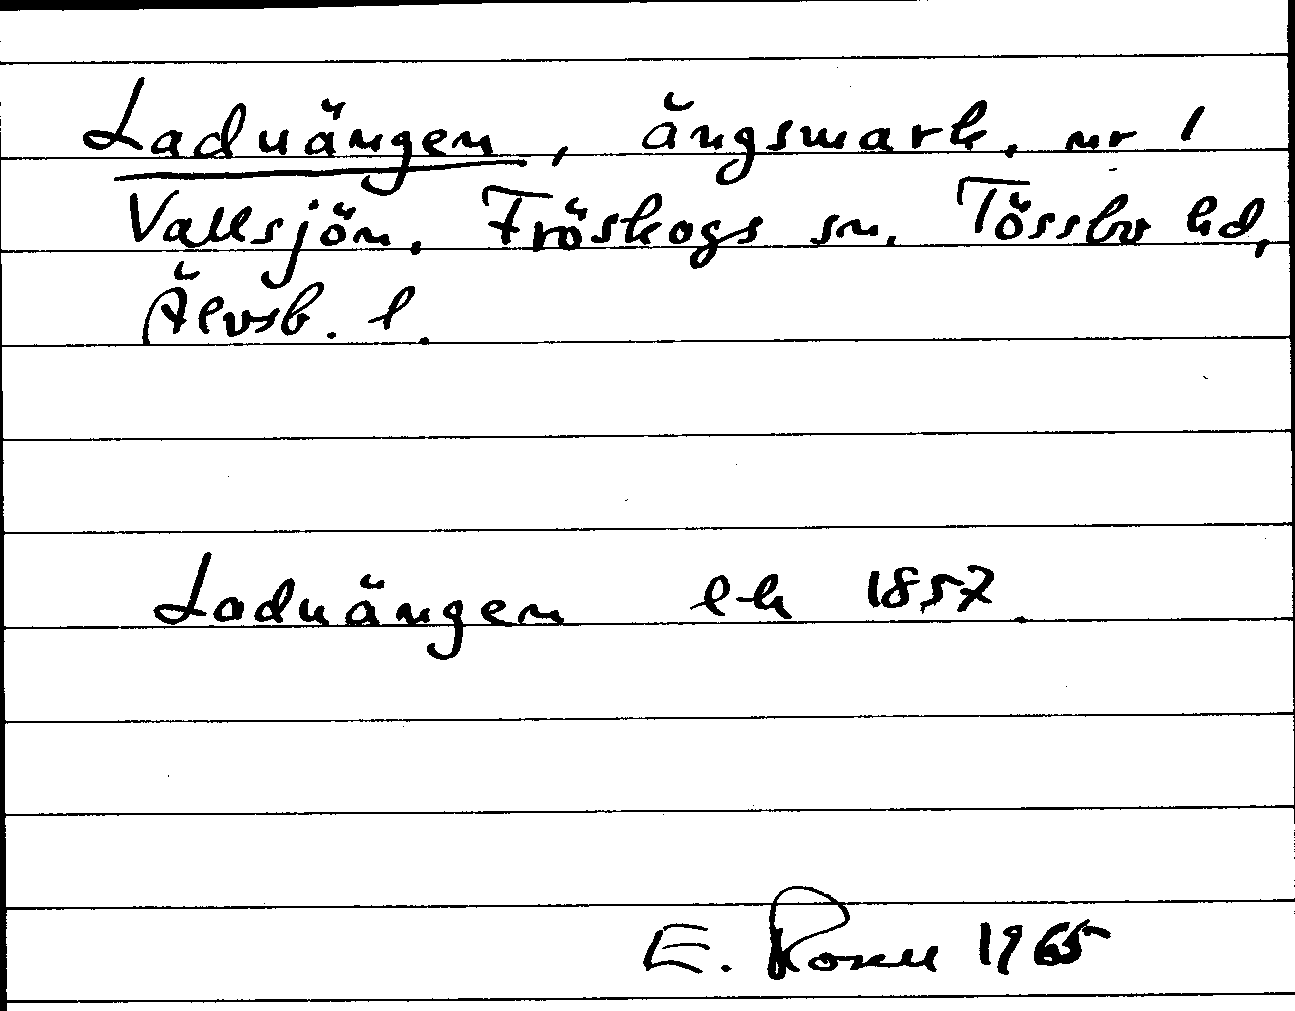 Laduängen, ängsmark, nr 1
Vallsjön. Fröskogs sn. Tössbo hd,
Älvsb. l.
Laduängen ek 1857.
E. Rosell 1965